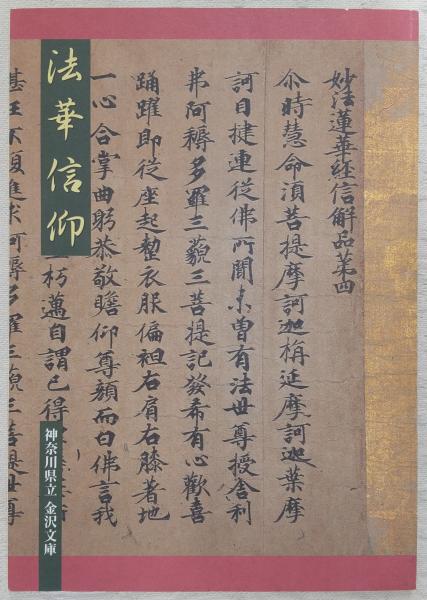 法華信仰
妙法蓮華経信解品第四
尒時慧命須菩提摩訶迦栴延摩訶迦葉摩
訶目揵連従佛所聞未曽有法世尊授舎利
弗阿耨多羅三藐三菩提記發希有心歡喜
踊躍即従座起整衣服偏袒右肩右膝著地
一心合掌曲躬恭敬瞻仰尊顔而白佛言我
朽邁自謂已得
甚正不復進求阿耨多羅三藐三菩提世尊
神奈川県立 金沢文庫